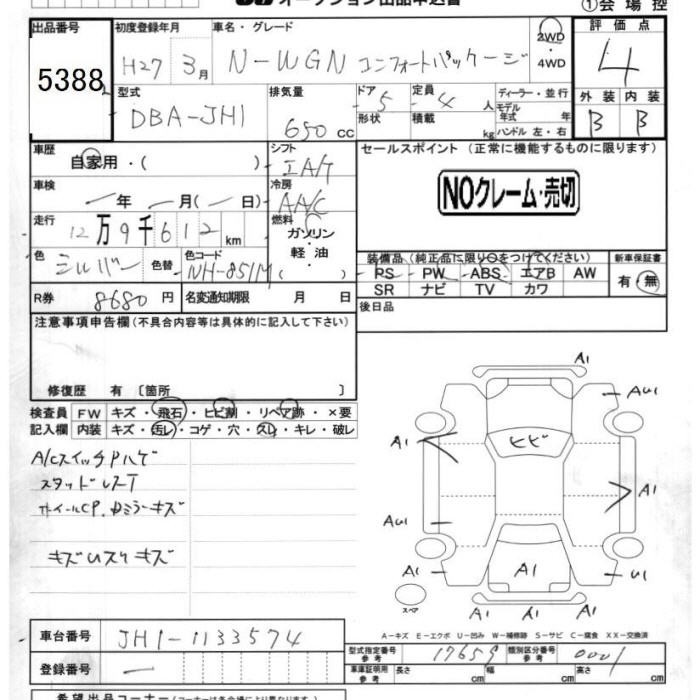 オークション出品申込書
①会場控
出品番号 初度登録年月 車名・グレード 評価点
5388 H27 3月 N-WGN コンフォートパッケージ 2WD ・4WD 4
型式 排気量 ドア 定員 ディーラー・並行 外装 内装
DBA-JH1 650 cc 5 4 人 モデル年式 年 B B
形状 積載 kg ハンドル 左・右
車歴 シフト セールスポイント (正常に機能するものに限ります)
自家用・( ) IA/T
車検 冷房 NOクレーム・売切
年 月( 日) AAC
走行 燃料
12万9千612km ガソリン
軽油
( )
色 色替 色コード 装備品 (純正品に限り〇をつけてください) 新車保証書
シルバー NH-851M PS PW ABS エアB AW 有・無
SR ナビ TV カワ
R券 8680円 名変通知期限 月 日 後日品
注意事項申告欄 (不具合内容等は具体的に記入して下さい)
修復歴 有 〔箇所 〕
検査員 FW キズ・飛石・ヒビ割・リペア跡・×要
記入欄 内装 キズ・汚レ・コゲ・穴・スレ・キレ・破レ
A/CスイッチPハゲ
スタッドレスT
ホイールCP.ドミラーキズ
キズUスリキズ
A1
AU1
A1 ヒビ
A1
AU1
A1 A1 U1
A1 A1 A1
スペア
A-キズ E-エクボ U-凹み W-補修跡 S-サビ C-腐食 XX-交換済
車台番号 JH1-1133574
型式指定番号 参考 17659 類別区分番号 参考 0001
登録番号 —
車庫証明用 参考 長さ cm 幅 cm 高さ cm
希望出品コーナー